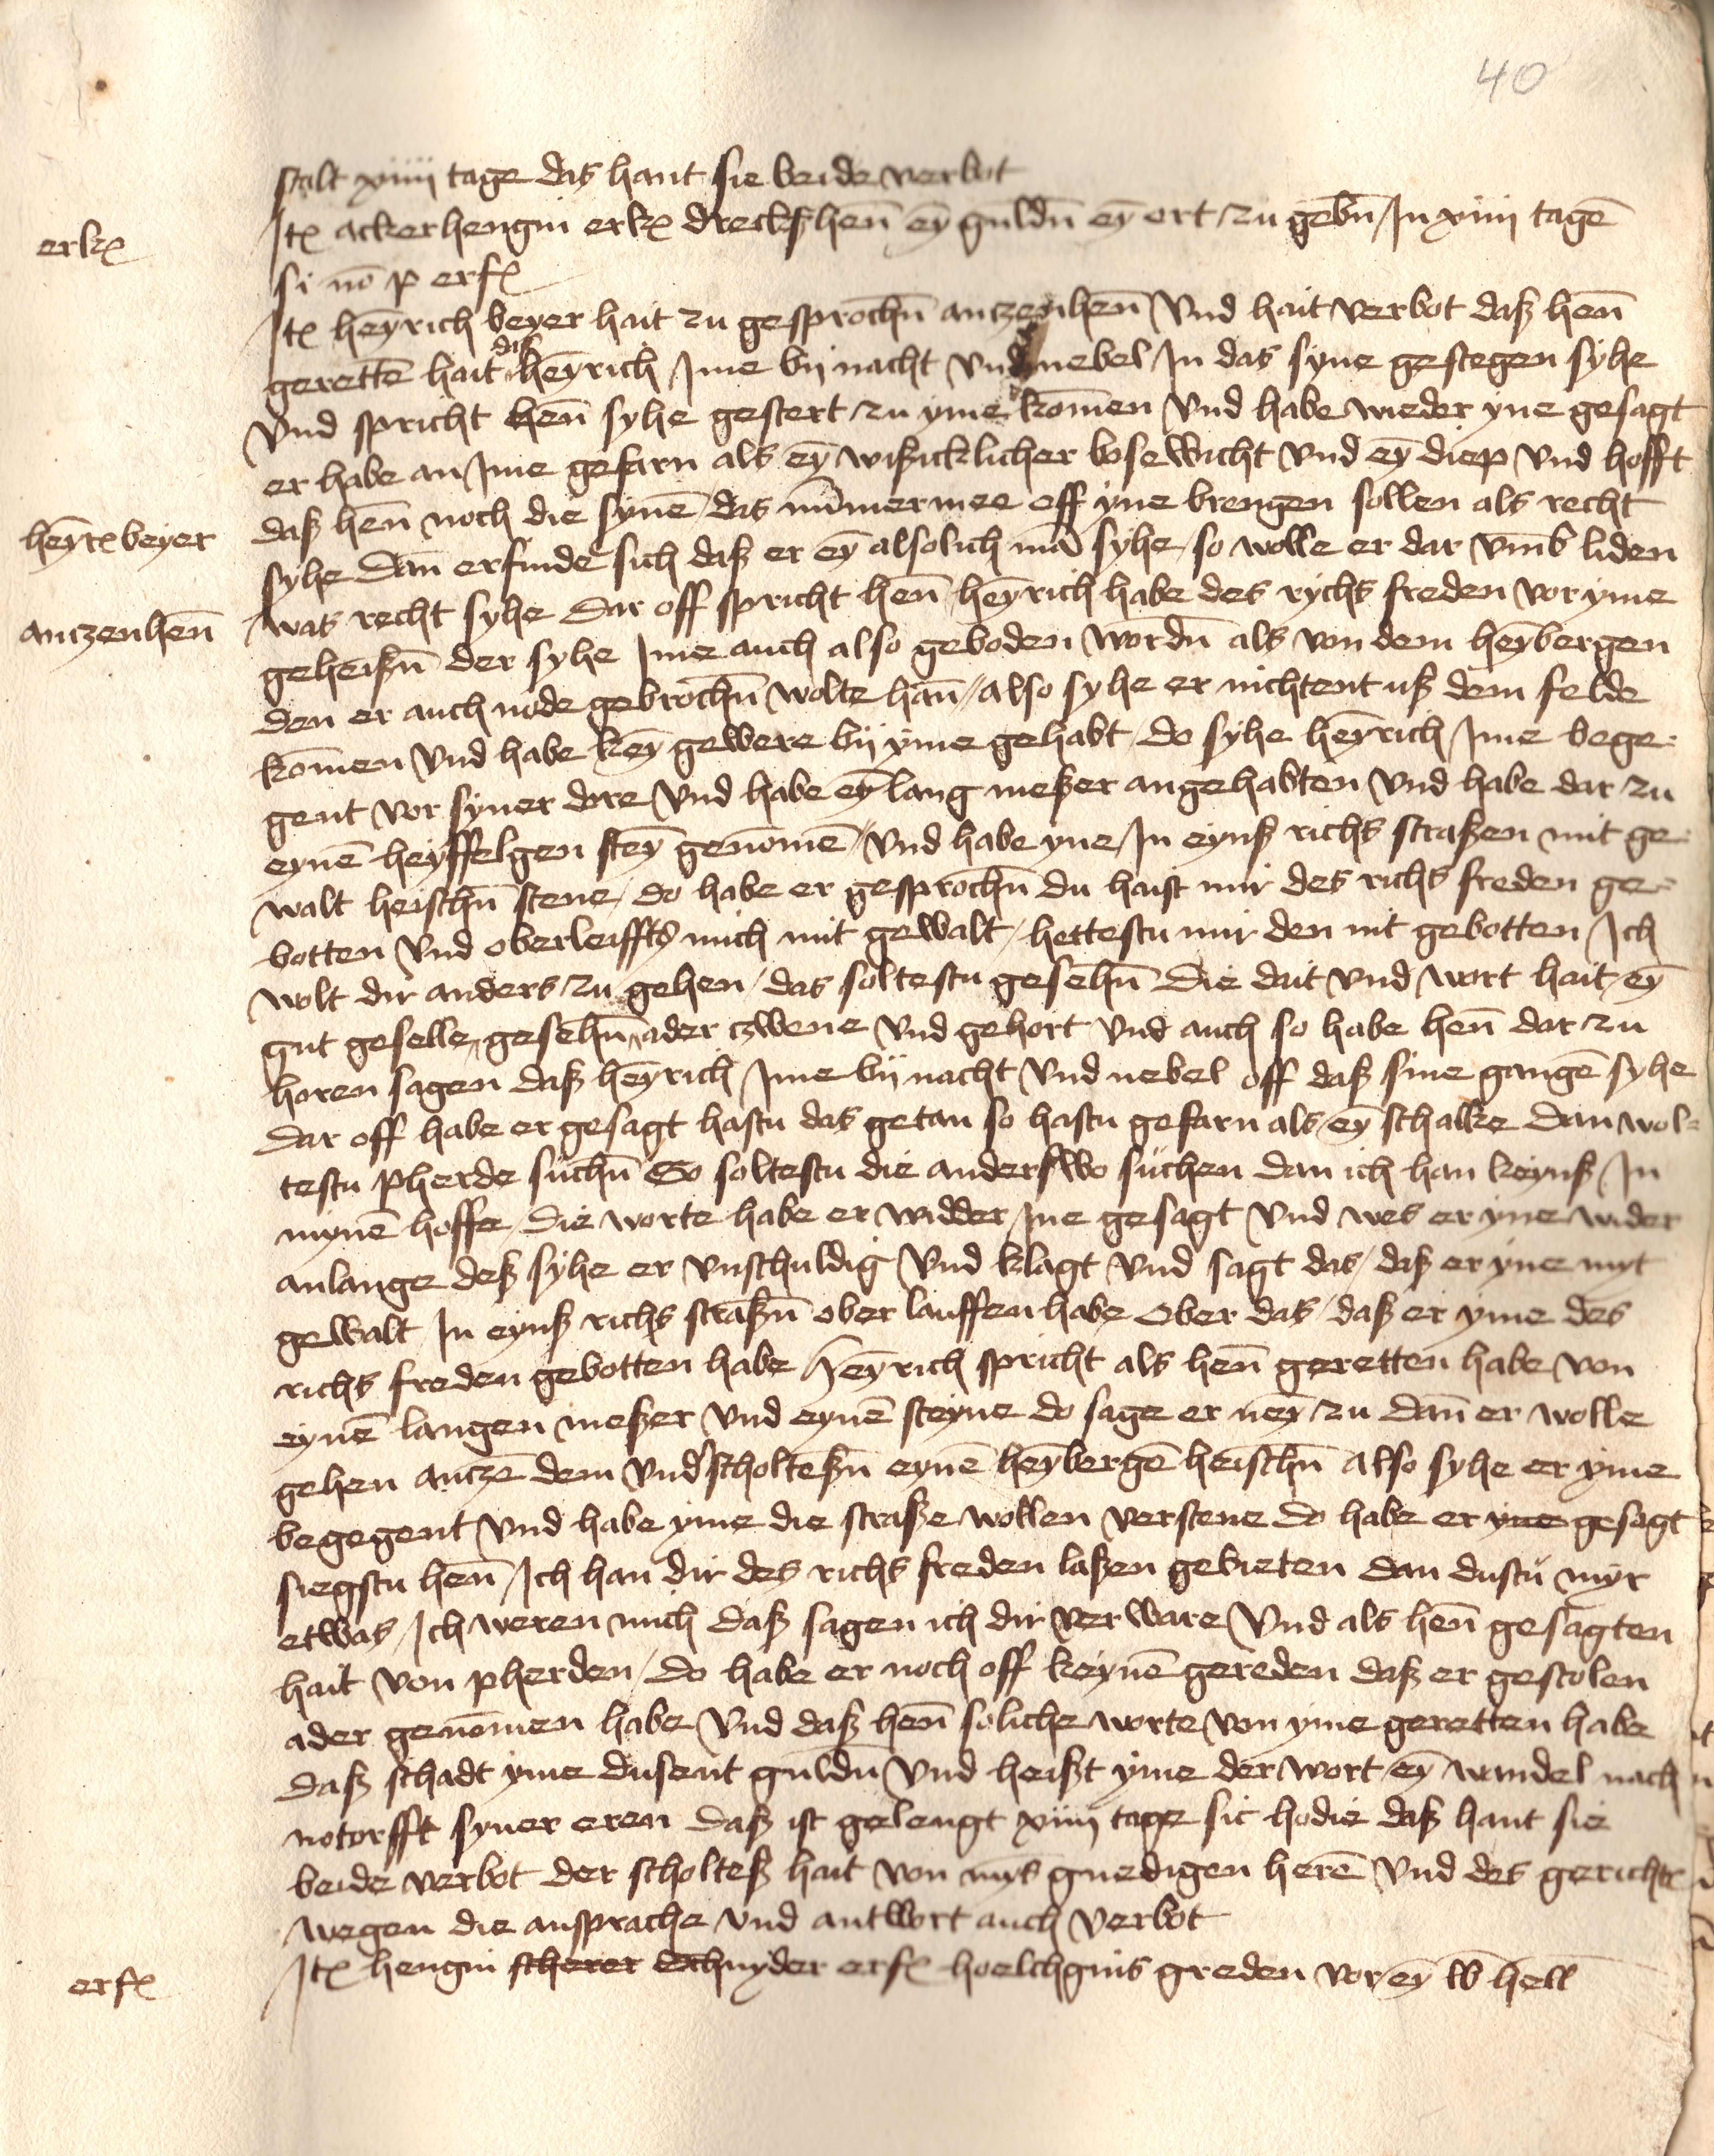 40
stalt xiiii tage das hant sie beide verbot
erkȩ
Itȩ ackerhengin erkȩ drecks hen̄ eȳ guldn̄ eȳ ort zu gebn̄ In xiiii tagē
si nō p erfȩ
Itȩ heȳrich beyer hait zu gesprochn̄ anczenhen̄ vnd hait verbot daß hen̄
gerettē hait das heȳrich Ime bij nacht vnd nebel In das syne gestegen syhe
vnd spricht hen̄ syhe gestert zu yme kom̄en vnd habe wieder yne gesagt
er habe an Ime gefarn als eȳ wißicklicher bosewicht vnd eȳ diep vnd hofft
daß hen̄ noch die synē das nūmer mee off yne brengen sollen als recht
heȳrȩ beyer
syhe dan̄ erfinde sich daß er eȳ alsolich mā syhe so wolle er dar vm̄b liden
was recht syhe dar off spricht hen̄ heȳrich habe des rychs freden vor yme
anczenhen̄
geheißn̄ der syhe Ime auch also geboden wordn̄ als von dem heȳbergen
den er auch node gebrochn̄ wolte han̄ also syhe er nichtent uß dem felde
kom̄en vnd habe keȳ gewere bij yme gehabt do syhe heȳrich Ime bege-
gent vor syner dore vnd habe eȳ lang meßer angehabten vnd habe dar zu
eynē heyffelgen steȳ genom̄ē vnd habe yne In eynß richs straßen mit ge-
walt heischn̄ stene do habe er gesprochn̄ du haist mir des richs freden ge-
botten vnd oberleiffts mich mit gewalt hettestu mir den nit gebotten Ich
wolt dir anders zu gehen das soltestu gesehn̄ die dait vnd wort hait eȳ
gut geselle gesehn̄ ader czwene vnd gehort vnd auch so habe hen̄ dar zu
horen sagen daß heȳrich Ime bij nacht vnd nebel off daß sine gangē syhe
dar off habe er gesagt hastu das getan so hastu gefarn als eȳ schalke dan wol-
testu pherde suchn̄ So soltestu die anderswo suchen dan ich han keynß In
mynē hoffe die worte habe er widder Ine gesagt vnd wes er yne wider
anlange deß syhe er vnschuldig vnd klagt vnd sagt das daß er yne myt
gewalt In eynß richs straßn̄ ober lauffen habe ober das daß er yme des
richs freden gebotten habe Heȳrich spricht als hen̄ geretten habe von
eynē langen meßer vnd eynē steyne do sage er neȳ zu dan̄ er wolle
gehen anczē dem vnd'scholteßn̄ eynē heȳbergē heischn̄ also syhe er yme
begegent vnd habe yme die straße wollen verstene do habe er yne gesagt
siegstu hen̄ Ich han dir des richs freden laßen gebieten dan dustu myr
etwas Ich weren mich daß sagen ich dir verware vnd als hen̄ gesagten
hait von pherden do habe er noch off keynē gereden daß er gestolen
ader genom̄en habe vnd daß hen̄ soliche worte von yme geretten habe
daß schadt yme dusent guldn̄ vnd heißt yme der wort eȳ wandel nach
notorfft syner eren daß ist gelengt xiiii tage sic hodie daß hant sie
beide verbot der scholteß hait von mȳs gnedigen herē vnd des gerichts
wegen die ansprache vnd antwort auch verbot
erfȩ
Itȩ hengin scherer schnyder erfȩ hoelchgins greden vor eȳ w hell